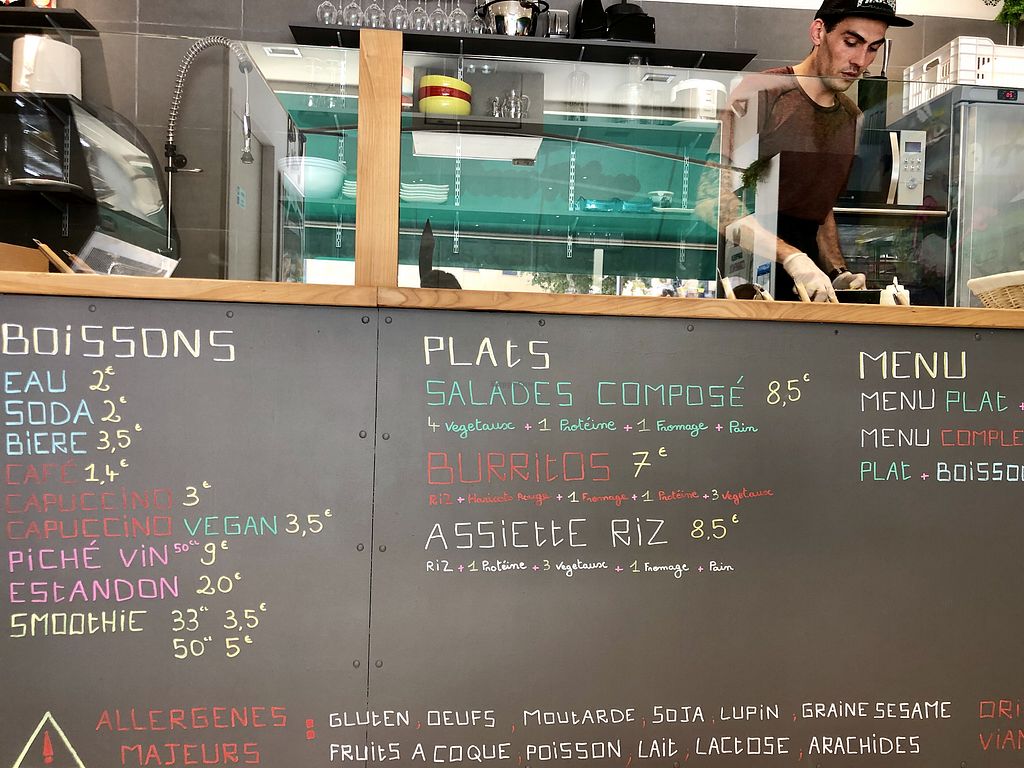 BOISSONS
EAU 2€
SODA 2€
BIERE 3,5€
CAFÉ 1,4€
CAPUCCINO 3€
CAPUCCINO VEGAN 3,5€
PICHÉ VIN 50cl 9€
ESTANDON 20€
SMOOTHIE 33cl 3,5€
50cl 5€
PLATS
SALADES COMPOSÉ 8,5€
4 Vegetaux + 1 Protéine + 1 Fromage + Pain
BURRITOS 7€
RIZ + Haricots Rouge + 1 Fromage + 1 Protéine + 3 Vegetaux
ASSIETTE RIZ 8,5€
RIZ + 1 Protéine + 3 Vegetaux + 1 Fromage + Pain
MENU
MENU PLAT +
MENU COMPLE
PLAT + BOISSO
ALLERGENES MAJEURS :
GLUTEN, OEUFS, MOUTARDE, SOJA, LUPIN, GRAINE SESAME
FRUITS A COQUE, POISSON, LAIT, LACTOSE, ARACHIDES
ORI
VIAN